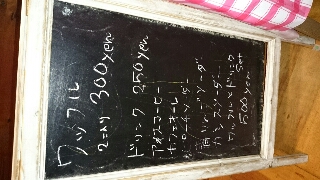 ワッフル
2コ入り 300yen
ドリンク 250yen
アイスコーヒー
カフェオーレ
カシスソーダー
ワッフルとドリンク
set
500yen